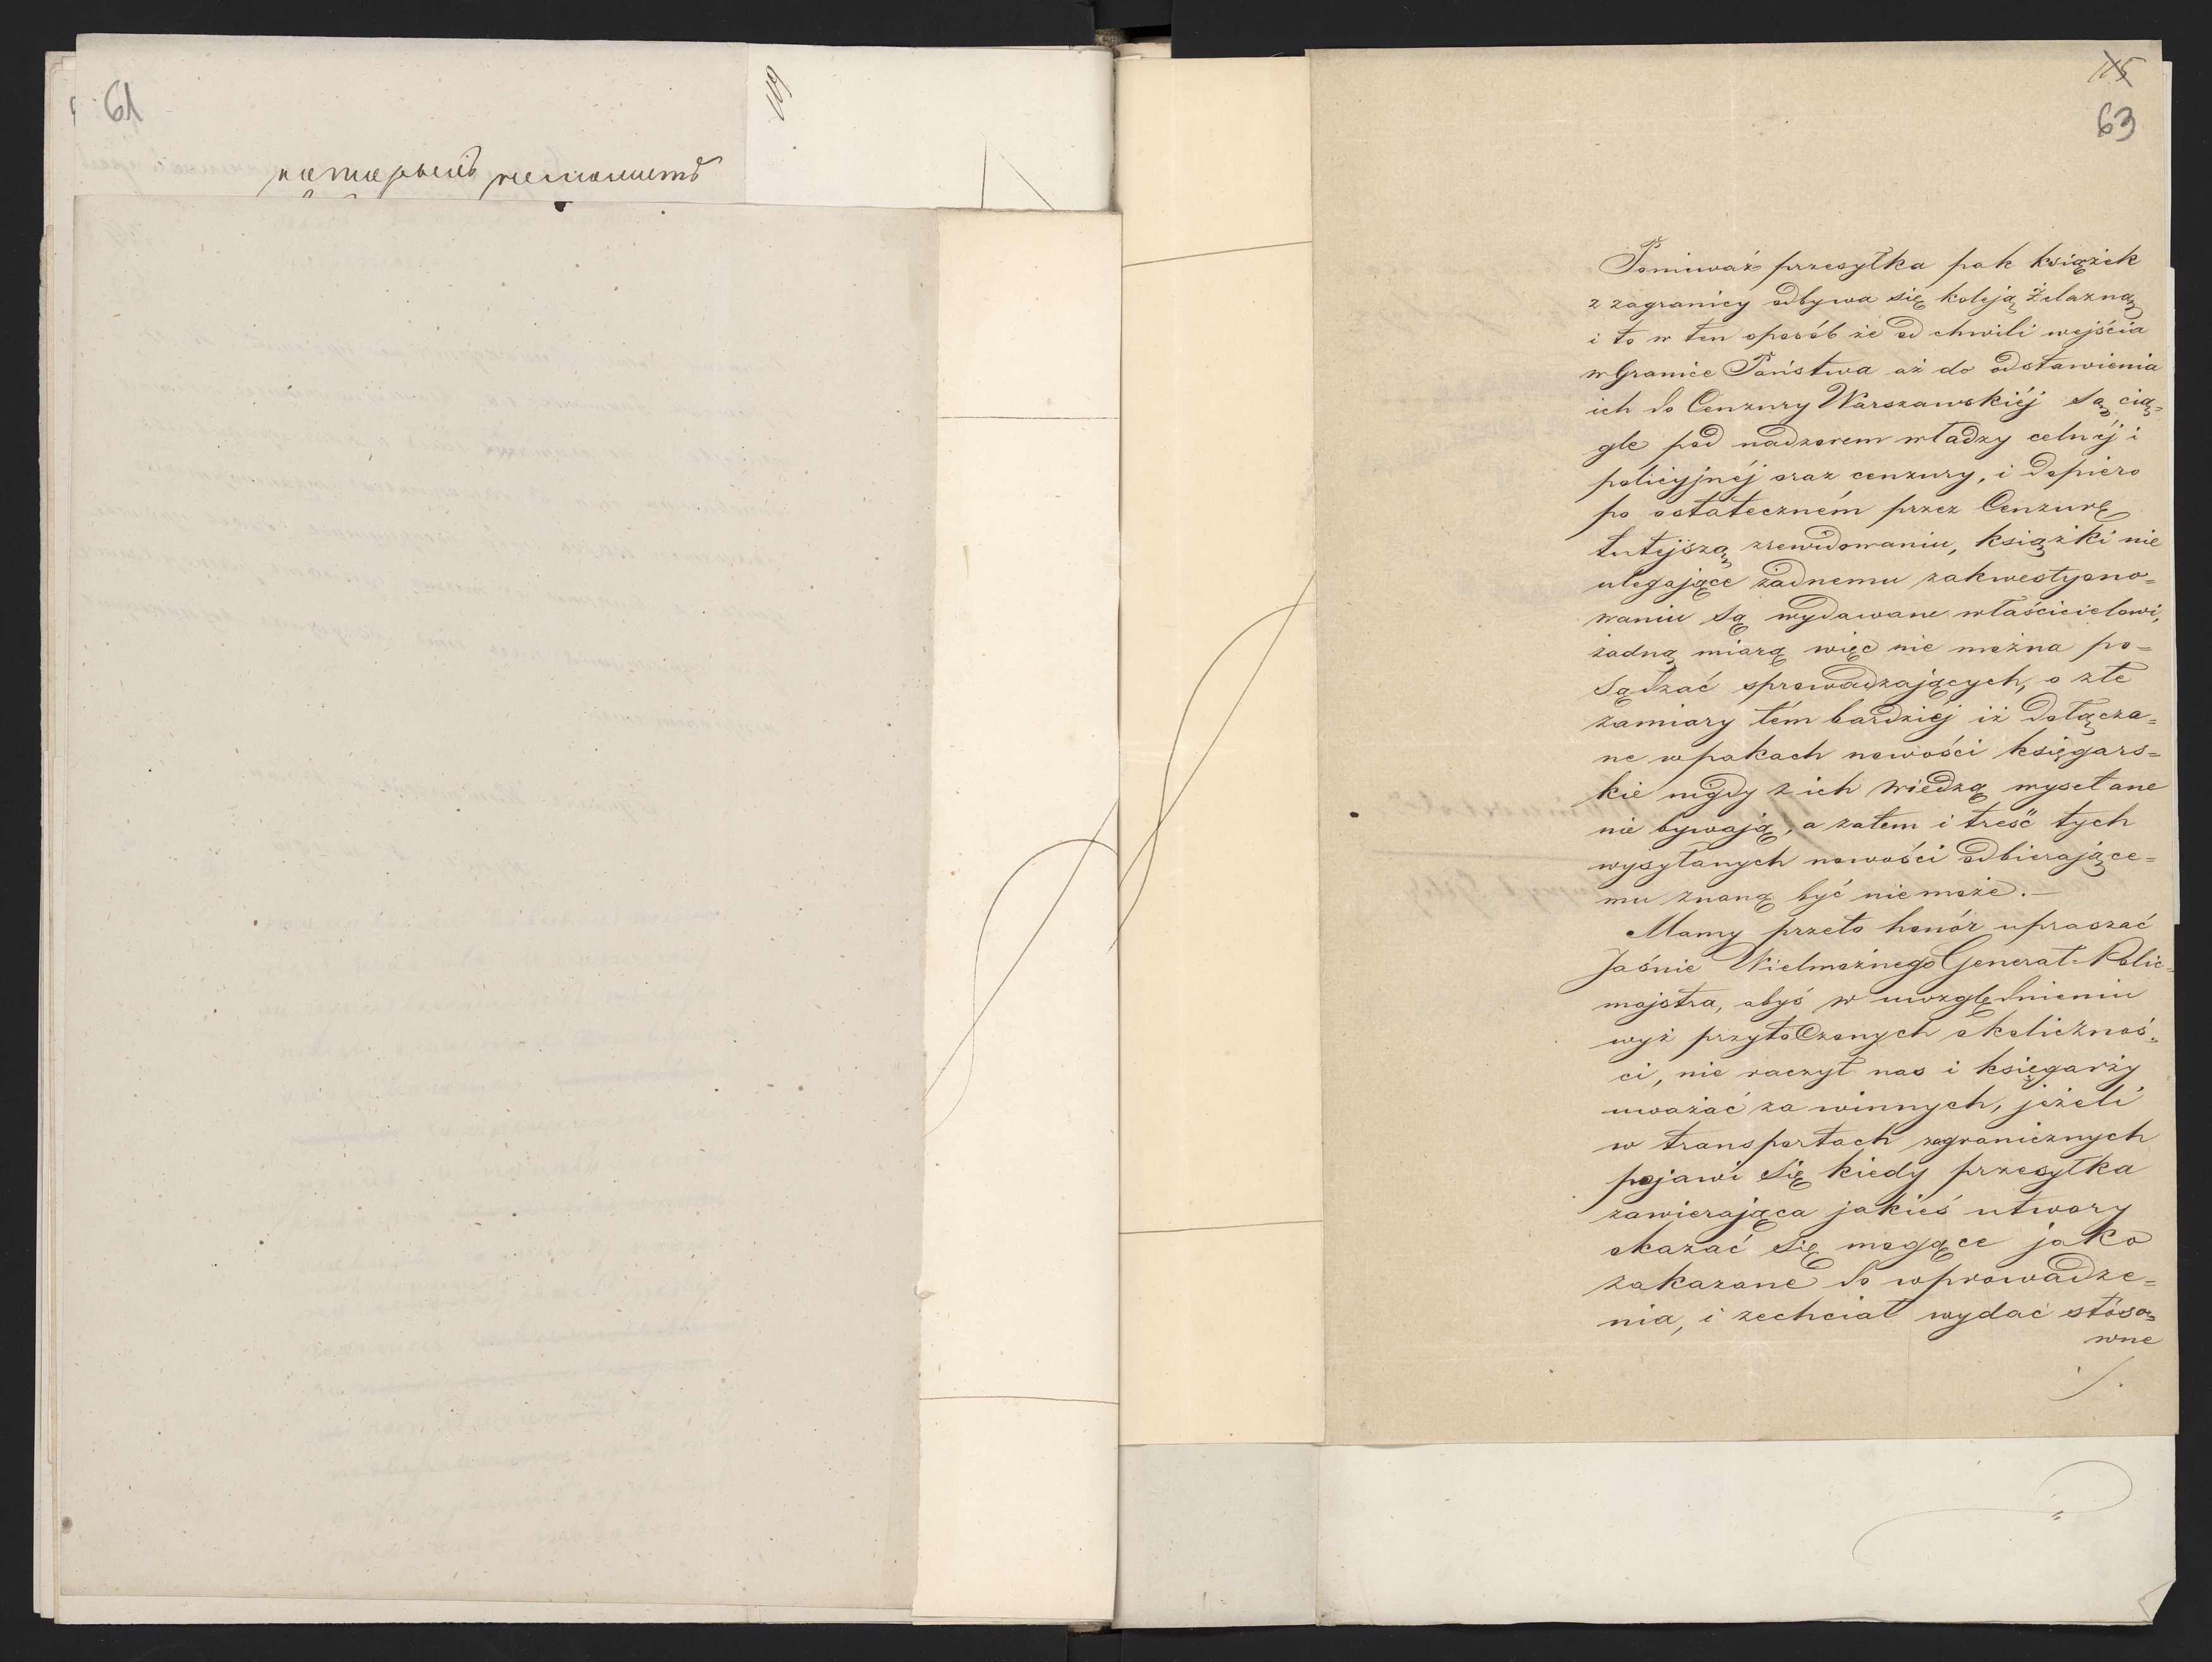 61
119
115
63
Poniuważ przesyłka pak książek
z zagranicy odbywa się koleją żelazną
i to w ten sposób że od chwili wejścia
w Granice Państwa aż do odstawienia
ich do Cenzury Warszawskiéj są cią=
gle pod nadzorem władzy celnéj i
policyjnéj oraz cenzury, i dopiero
po ostateczném przez Cenzurę
tutejszą zrewidowaniu, książki nie
ulegające żadnemu zakwestyono=
waniu są wydawane właścicielowi,
żadną miarą więc nie można po=
sądzać sprowadzających, o złe
zamiary tém bardziéj iż dołącza=
ne w pakach nowości księgars=
kie nigdy z ich wiedzą wysełane
nie bywają, a zatem i treść tych
wysyłanych nowości odbierające=
mu znaną być nie może. —
Mamy przeto honór upraszać
Jaśnie Wielmożnego Generał=Polic=
majstra, abyś w uwzględnieniu
wyż przytoczonych okolicznoś=
ci, nie raczył nas i księgarży
uważać za winnych, jeżeli
w transportach zagranicznych
pojawi się kiedy przesyłka
zawierająca jakieś utwory
okazać się mogące jako
zakazane do wprowadze=
nia, i zechciał wydać stóso=
wne